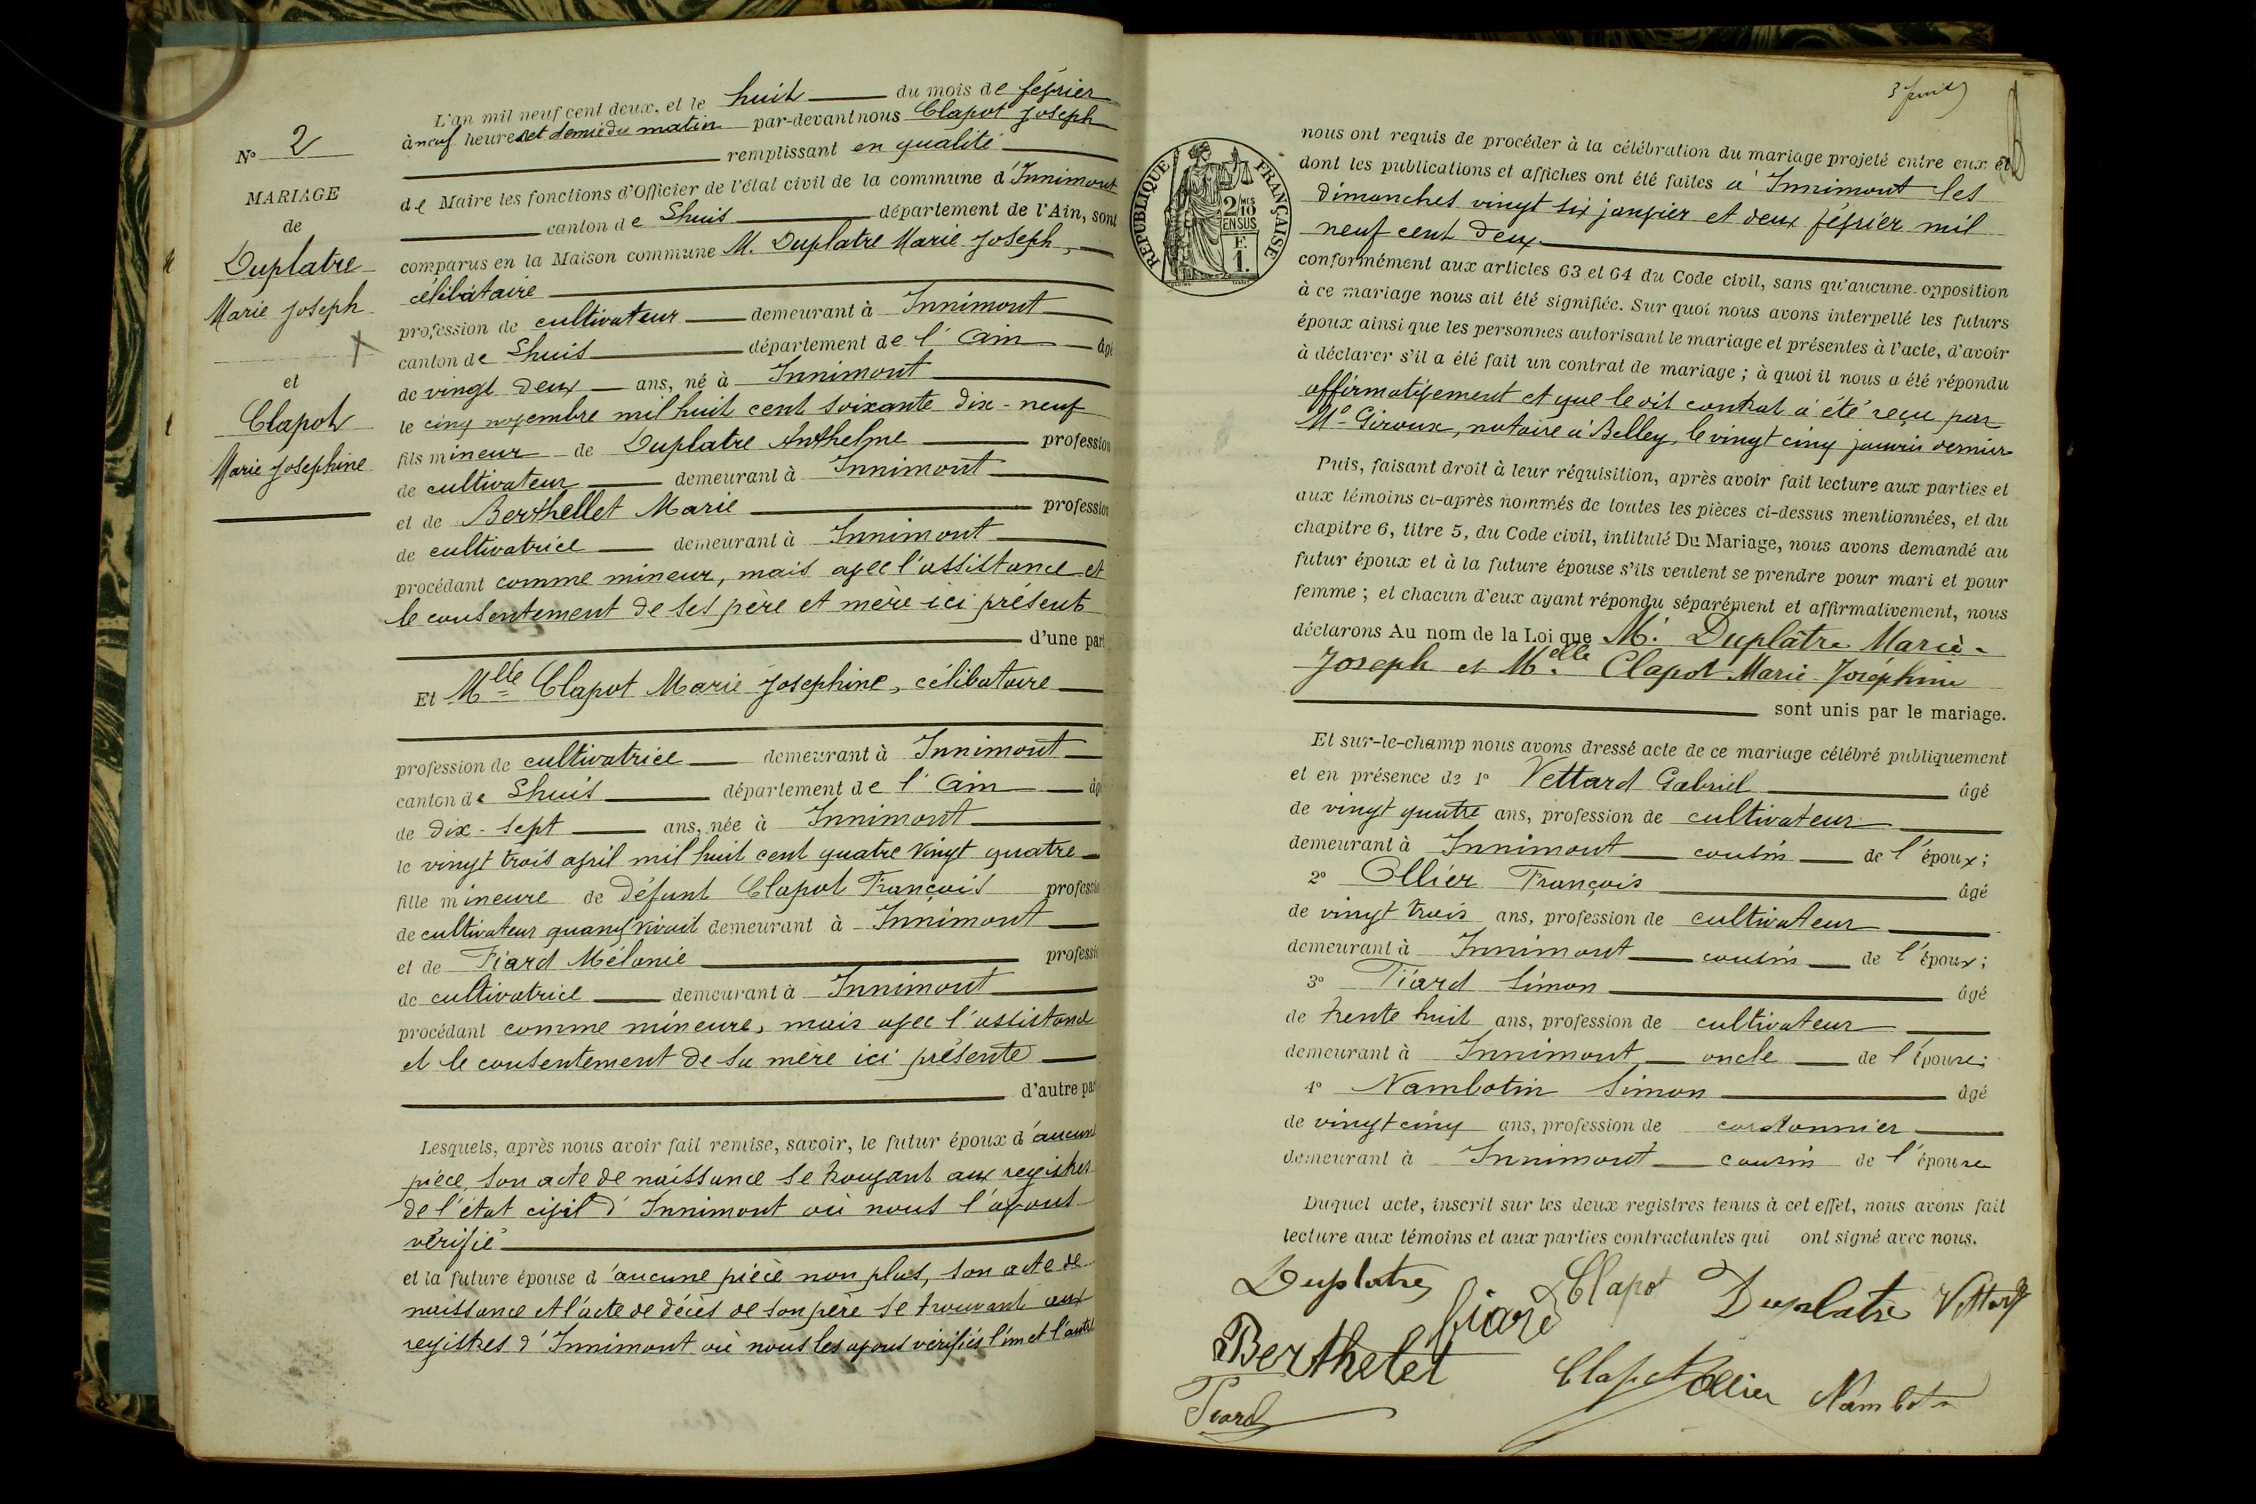 N° 2
MARIAGE
de
Duplatre
Marie Joseph
et
Clapot
Marie Josephine
L'an mil neuf cent deux, et le huit du mois de février
à neuf heures et demie du matin par-devant nous Clapot Joseph
remplissant en qualité
de Maire les fonctions d'Officier de l'état civil de la commune d'Innimont
canton de Lhuis département de l'Ain, sont
comparus en la Maison commune M. Duplatre Marie Joseph,
célibataire
profession de cultivateur demeurant à Innimont
canton de Lhuis département de l'Ain âgé
de vingt deux ans, né à Innimont
le cinq novembre mil huit cent soixante dix-neuf
fils mineur de Duplatre Anthelme profession
de cultivateur demeurant à Innimont
et de Berthellet Marie profession
de cultivatrice demeurant à Innimont
procédant comme mineur, mais avec l'assistance et
le consentement de ses père et mère ici présents
d'une part
Et Mlle Clapot Marie Josephine, célibataire
profession de cultivatrice demeurant à Innimont
canton de Lhuis département de l'Ain âgé
de dix-sept ans, née à Innimont
le vingt trois avril mil huit cent quatre vingt quatre
fille mineure de défunt Clapot François profession
de cultivateur quand vivait demeurant à Innimont
et de Tiard Mélanie profession
de cultivatrice demeurant à Innimont
procédant comme mineure, mais avec l'assistance
et le consentement de sa mère ici présente
d'autre part
Lesquels, après nous avoir fait remise, savoir, le futur époux d'aucune
pièce, son acte de naissance se trouvant aux registres
de l'état civil d'Innimont où nous l'avons
vérifié
et la future épouse d'aucune pièce non plus, son acte de
naissance et l'acte de décès de son père se trouvant aux
registres d'Innimont où nous les avons vérifiés l'un et l'autre
RÉPUBLIQUE FRANÇAISE
2/10 EN SUS
F.
1.
nous ont requis de procéder à la célébration du mariage projeté entre eux et
dont les publications et affiches ont été faites à Innimont les
dimanches vingt six janvier et deux février mil
neuf cent deux
conformément aux articles 63 et 64 du Code civil, sans qu'aucune opposition
à ce mariage nous ait été signifiée. Sur quoi nous avons interpellé les futurs
époux ainsi que les personnes autorisant le mariage et présentes à l'acte, d'avoir
à déclarer s'il a été fait un contrat de mariage ; à quoi il nous a été répondu
affirmativement et que le dit contrat a été reçu par
Me Giroux, notaire à Belley, le vingt cinq janvier dernier
Puis, faisant droit à leur réquisition, après avoir fait lecture aux parties et
aux témoins ci-après nommés de toutes les pièces ci-dessus mentionnées, et du
chapitre 6, titre 5, du Code civil, intitulé Du Mariage, nous avons demandé au
futur époux et à la future épouse s'ils veulent se prendre pour mari et pour
femme ; et chacun d'eux ayant répondu séparément et affirmativement, nous
déclarons Au nom de la Loi que M. Duplâtre Marie-
Joseph et Melle Clapot Marie Joséphine
sont unis par le mariage.
Et sur-le-champ nous avons dressé acte de ce mariage célébré publiquement
et en présence de 1° Vettard Gabriel âgé
de vingt quatre ans, profession de cultivateur
demeurant à Innimont cousin de l'époux ;
2° Ollier François âgé
de vingt trois ans, profession de cultivateur
demeurant à Innimont cousin de l'époux ;
3° Tiard Simon âgé
de trente huit ans, profession de cultivateur
demeurant à Innimont oncle de l'épouse ;
4° Nambotin Simon âgé
de vingt cinq ans, profession de cordonnier
demeurant à Innimont cousin de l'épouse
Duquel acte, inscrit sur les deux registres tenus à cet effet, nous avons fait
lecture aux témoins et aux parties contractantes qui ont signé avec nous.
Duplatre Clapot Duplatre Vettard
Berthelet Tiard Clapot Ollier Nambotin
Tiard